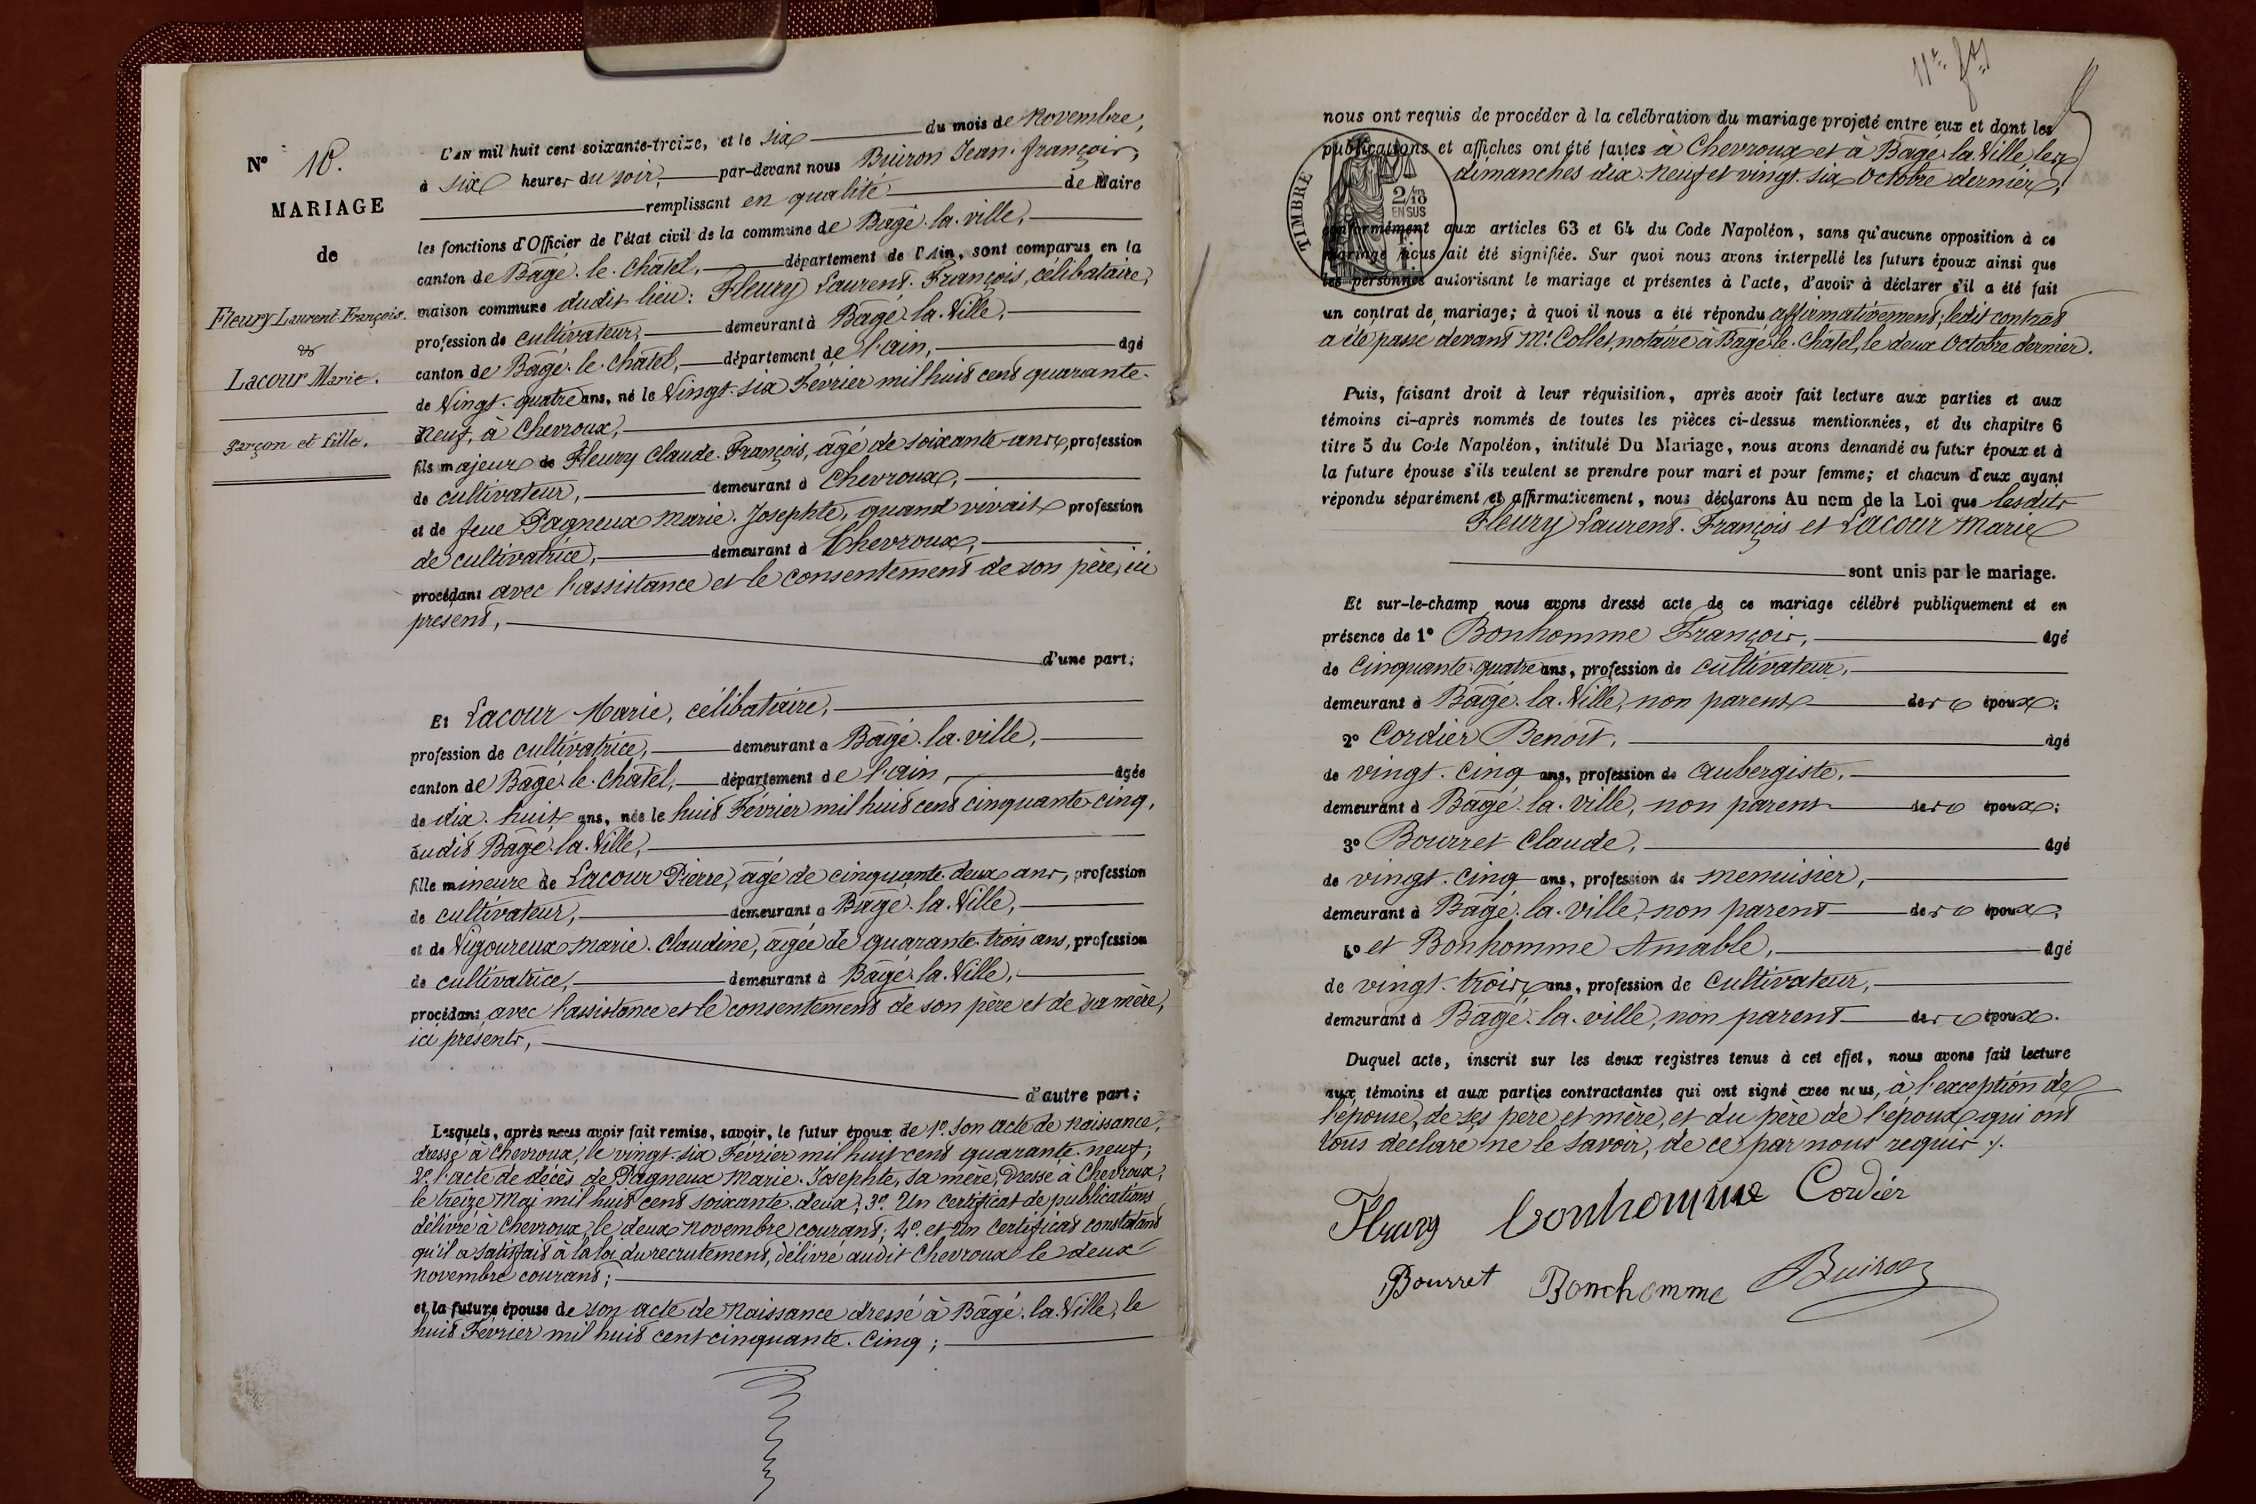 N° 18.
MARIAGE
de
Fleury Laurent-François.
&
Lacour Marie.
garçon et fille.
L'AN mil huit cent soixante-treize, et le six du mois de Novembre,
à six heures du soir, par-devant nous Buiron Jean-François,
remplissant en qualité de Maire
les fonctions d'Officier de l'état civil de la commune de Bâgé-la-ville,
canton de Bâgé-le-Châtel, département de l'Ain, sont comparus en la
maison commune dudit lieu: Fleury Laurent-François, célibataire,
profession de cultivateur, demeurant à Bâgé-la-Ville,
canton de Bâgé-le-Châtel, département de l'ain, âgé
de Vingt-quatre ans, né le Vingt-six Février mil huit cent quarante-
neuf, à Chevroux,
fils majeur de Fleury Claude-François, âgé de soixante ans, profession
de cultivateur, demeurant à Chevroux,
et de feue Pagneux Marie-Josephte, quand vivait profession
de cultivatrice, demeurant à Chevroux,
procédant avec l'assistance et le consentement de son père, ici
présent,
d'une part;
Et Lacour Marie, célibataire,
profession de cultivatrice, demeurant à Bâgé-la-ville,
canton de Bâgé-le-Châtel, département de l'ain, âgée
de dix-huit ans, née le huit Février mil huit cent cinquante-cinq,
audit Bâgé-la-Ville,
fille mineure de Lacour Pierre, âgé de cinquante-deux ans, profession
de cultivateur, demeurant à Bâgé-la-Ville,
et de Vigoureux Marie-Claudine, âgée de quarante-trois ans, profession
de cultivatrice, demeurant à Bâgé-la-Ville,
procédant avec l'assistance et le consentement de son père et de sa mère,
ici présents,
d'autre part;
Lesquels, après nous avoir fait remise, savoir, le futur époux de 1° son acte de naissance,
dressé à Chevroux, le vingt-six Février mil huit cent quarante-neuf;
2° l'acte de décès de Pagneux Marie-Josephte, sa mère, dressé à Chevroux,
le treize Mai mil huit cent soixante-deux; 3° Un certificat de publications
délivré à Chevroux, le deux novembre courant; 4° et Un certificat constatant
qu'il a satisfait à la loi du recrutement, délivré audit Chevroux le deux
novembre courant;
et la future épouse de son acte de Naissance dressé à Bâgé-la-Ville, le
huit Février mil huit cent cinquante-cinq;
nous ont requis de procéder à la célébration du mariage projeté entre eux et dont les
publications et affiches ont été faites à Chevroux et à Bâgé-la-Ville les
dimanches dix-neuf et vingt-six Octobre dernier,
TIMBRE
2/10
EN SUS
conformément aux articles 63 et 64 du Code Napoléon, sans qu'aucune opposition à ce
mariage nous ait été signifiée. Sur quoi nous avons interpellé les futurs époux ainsi que
les personnes autorisant le mariage et présentes à l'acte, d'avoir à déclarer s'il a été fait
un contrat de mariage; à quoi il nous a été répondu affirmativement, ledit contrat
a été passé devant Me Collet, notaire à Bâgé-le-Châtel, le deux Octobre dernier.
Puis, faisant droit à leur réquisition, après avoir fait lecture aux parties et aux
témoins ci-après nommés de toutes les pièces ci-dessus mentionnées, et du chapitre 6
titre 5 du Code Napoléon, intitulé Du Mariage, nous avons demandé au futur époux et à
la future épouse s'ils veulent se prendre pour mari et pour femme; et chacun d'eux ayant
répondu séparément et affirmativement, nous déclarons Au nom de la Loi que lesdits
Fleury Laurent-François et Lacour Marie
sont unis par le mariage.
Et sur-le-champ nous avons dressé acte de ce mariage célébré publiquement et en
présence de 1° Bonhomme François, âgé
de Cinquante-quatre ans, profession de cultivateur,
demeurant à Bâgé-la-Ville, non parent des époux;
2° Cordier Benoît, âgé
de vingt-cinq ans, profession de aubergiste,
demeurant à Bâgé-la-ville, non parent des époux;
3° Bourret Claude, âgé
de vingt-cinq ans, profession de menuisier,
demeurant à Bâgé-la-ville, non parent des époux;
4° et Bonhomme Amable, âgé
de vingt-trois ans, profession de cultivateur,
demeurant à Bâgé-la-ville, non parent des époux.
Duquel acte, inscrit sur les deux registres tenus à cet effet, nous avons fait lecture
aux témoins et aux parties contractantes qui ont signé avec nous, à l'exception de
l'épouse, de ses père et mère, et du père de l'époux qui ont
tous déclaré ne le savoir, de ce par nous requis.
Fleury bonhomme Cordier
Bourret Bonhomme Buiron